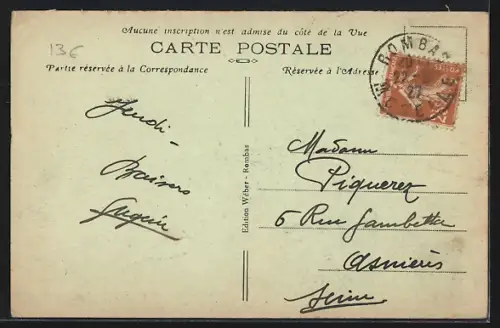 Aucune inscription n'est admise du côté de la Vue
13€
CARTE POSTALE
Partie réservée à la Correspondance
Réservée à l'Adresse
ROMBAS
Jeudi -
Baisers
Edition Wéber - Rombas
Madame
Piquerez
6 Rue Gambetta
Asnières
Seine